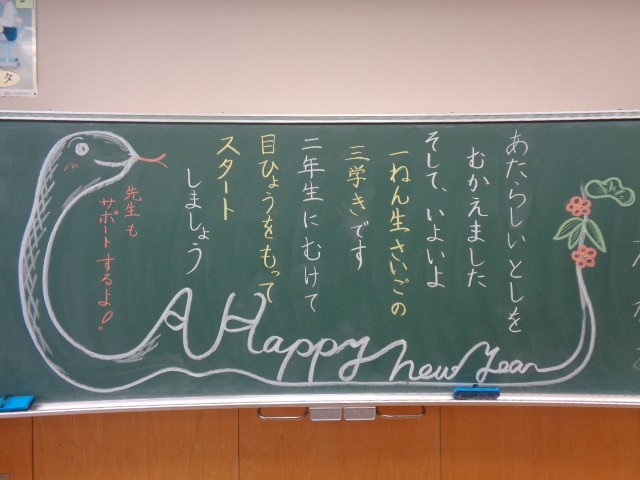 あたらしいとしを
むかえました
そして、いよいよ
一ねん生さいごの
三学きです
二年生にむけて
目ひょうをもって
スタート
しましょう
先生も
サポートするよ!
A Happy new Year
タ